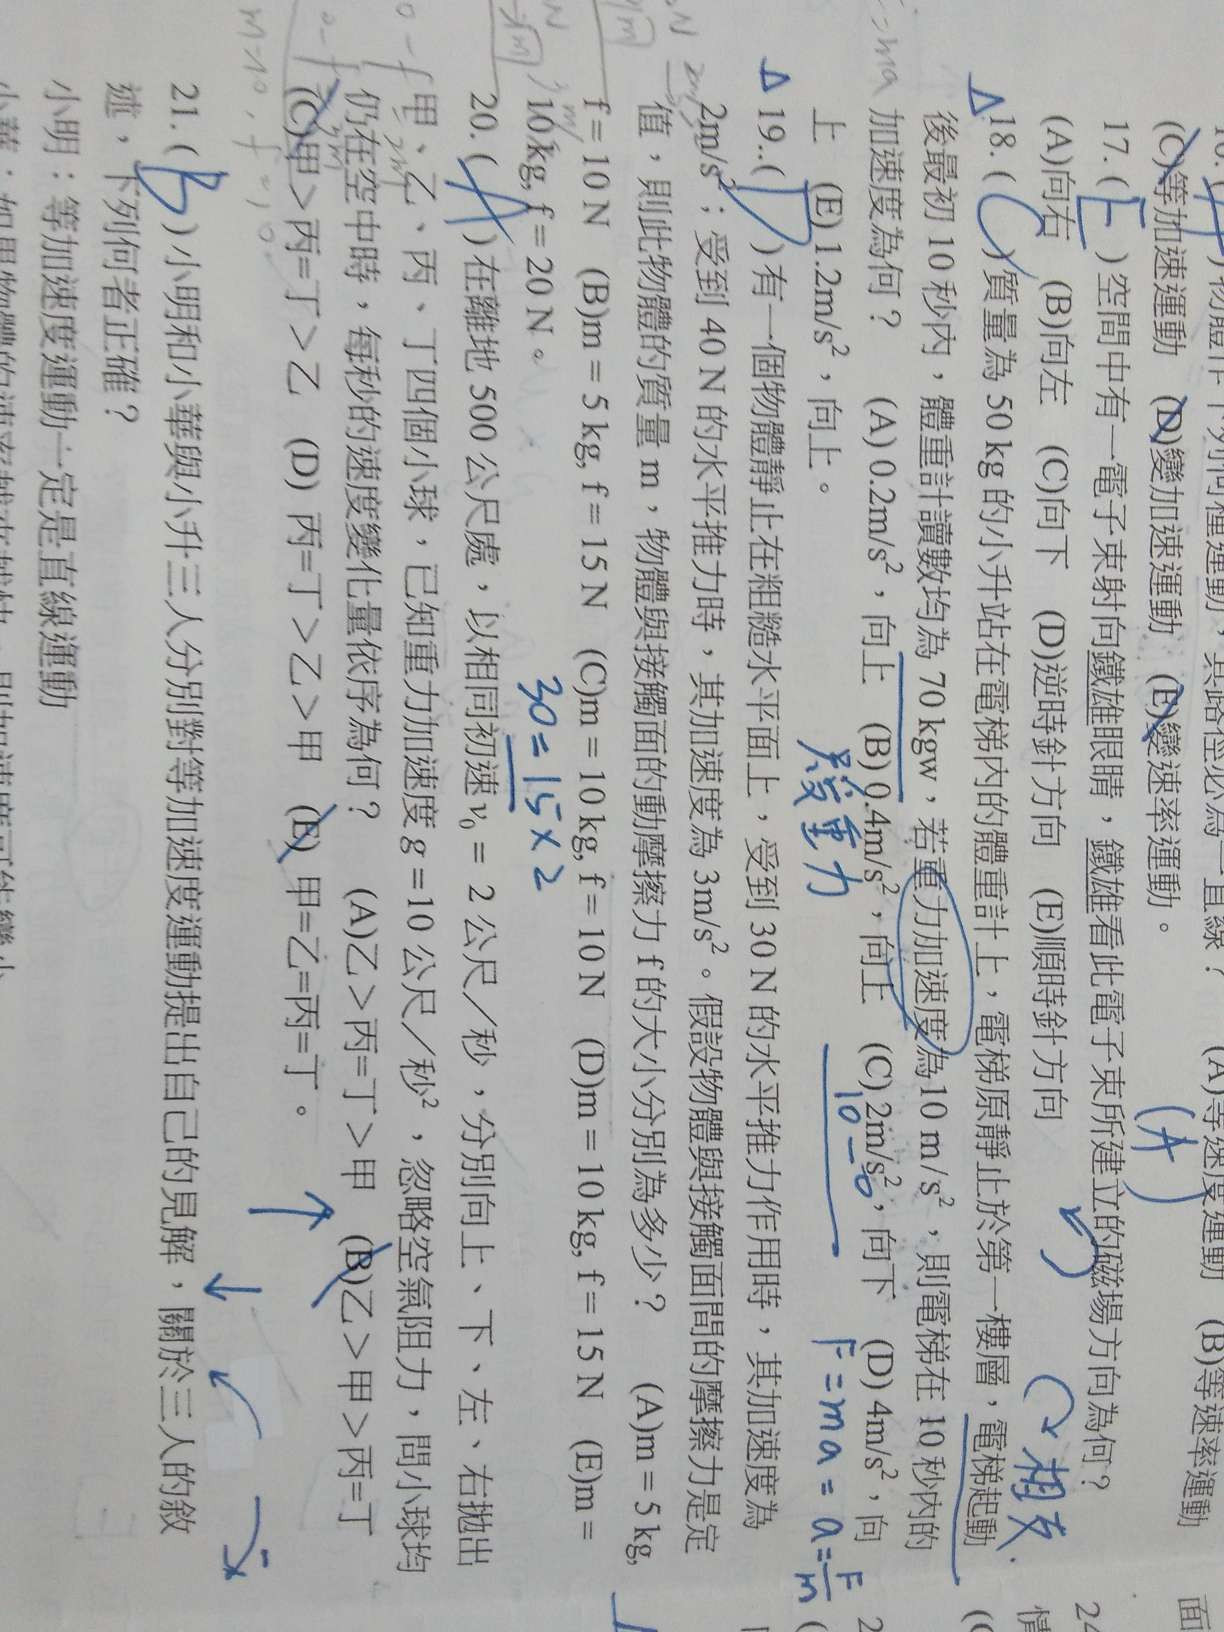 (C)等加速運動 (D)變加速運動 (E)變速率運動。
17.(E)空間中有一電子束射向鐵雄眼睛，鐵雄看此電子束所建立的磁場方向為何？
(A)向右 (B)向左 (C)向下 (D)逆時針方向 (E)順時針方向
相反
△18.(C)質量為 50 kg 的小升站在電梯內的體重計上，電梯原靜止於第一樓層，電梯起動
後最初 10 秒內，體重計讀數均為 70 kgw，若重力加速度為 10 m/s²，則電梯在 10 秒內的
加速度為何？ (A) 0.2m/s²，向上 (B) 0.4m/s²，向上 (C) 2m/s²，向下 (D) 4m/s²，向
上 (E) 1.2m/s²，向上。
F=ma = a=F/m
△19..(D)有一個物體靜止在粗糙水平面上，受到 30 N 的水平推力作用時，其加速度為
2m/s²；受到 40 N 的水平推力時，其加速度為 3m/s²。假設物體與接觸面間的摩擦力是定
值，則此物體的質量 m，物體與接觸面的動摩擦力 f 的大小分別為多少？ (A)m = 5 kg,
f = 10 N (B)m = 5 kg, f = 15 N (C)m = 10 kg, f = 10 N (D)m = 10 kg, f = 15 N (E)m =
10 kg, f = 20 N。
30=15×2
20.(A)在離地 500 公尺處，以相同初速 v₀ = 2 公尺／秒，分別向上、下、左、右拋出
甲、乙、丙、丁四個小球，已知重力加速度 g = 10 公尺／秒²，忽略空氣阻力，問小球均
仍在空中時，每秒的速度變化量依序為何？ (A)乙＞丙＝丁＞甲 (B)乙＞甲＞丙＝丁
(C)甲＞丙＝丁＞乙 (D) 丙＝丁＞乙＞甲 (E) 甲＝乙＝丙＝丁。
21.(B)小明和小華與小升三人分別對等加速度運動提出自己的見解，關於三人的敘
述，下列何者正確？
小明：等加速度運動一定是直線運動